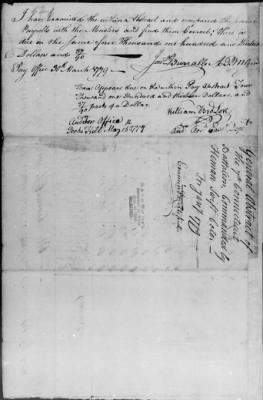 I have examined the within Abstract and compared the several
Payrolls with the Musters and find them Correct, there is
due on the same four Thousand one hundred and thirteen
Dollars and /90
Pay Office 30th March 1779
There Appears due on the within Pay Abstract Four
Thousand one Hundred and thirteen Dollars and
/90 parts of a Dollar
William
Auditors Office
Fish Kill May 15 1779
General Abstract of
the 7th Connecticut
Battalion Commanded by
Heman Swift Colo
for Jany 1779
Examined